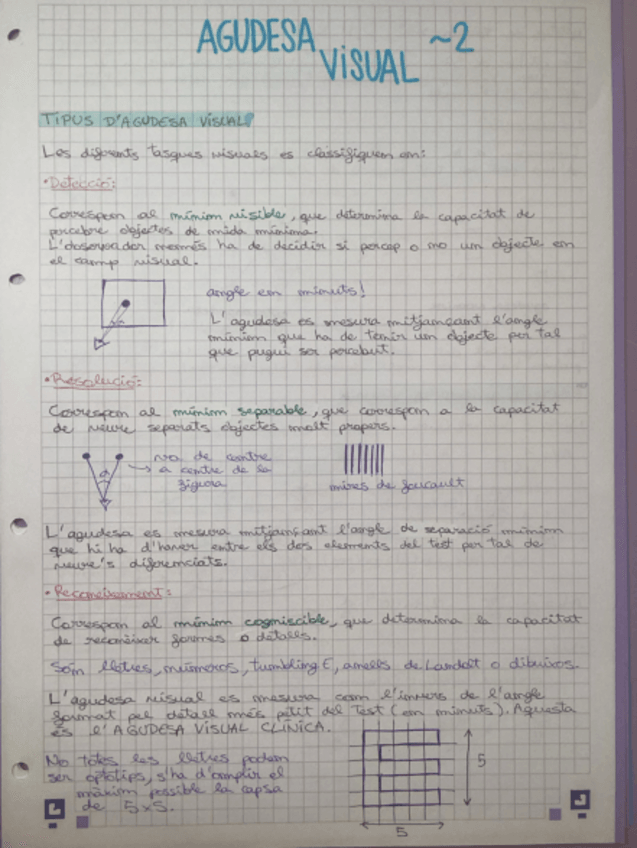 AGUDESA VISUAL ~2
TIPUS D'AGUDESA VISUAL
Les diferents tasques visuals es classifiquen en:
• Detecció:
Correspon al mínim visible, que determina la capacitat de
percebre objectes de mida mínima.
L'observador només ha de decidir si percep o no un objecte en
el camp visual.
angle en minuts!
L'agudesa es mesura mitjançant l'angle
mínim que ha de tenir un objecte per tal
que pugui ser percebut.
• Resolució:
Correspon al mínim separable, que correspon a la capacitat
de veure separats objectes molt propers.
va de centre
a centre de la
figura
mires de foucault
L'agudesa es mesura mitjançant l'angle de separació mínim
que hi ha d'haver entre els dos elements del test per tal de
veure's diferenciats.
• Reconeixement:
Correspon al mínim cogniscible, que determina la capacitat
de reconèixer formes o detalls.
Són lletres, números, tumbling E, anells de Landolt o dibuixos.
L'agudesa visual es mesura com l'invers de l'angle
format pel detall més petit del test (en minuts). Aquesta
és l'AGUDESA VISUAL CLÍNICA.
No totes les lletres poden
ser optotips, s'ha d'omplir el
màxim possible la capsa
de 5x5.
5
5